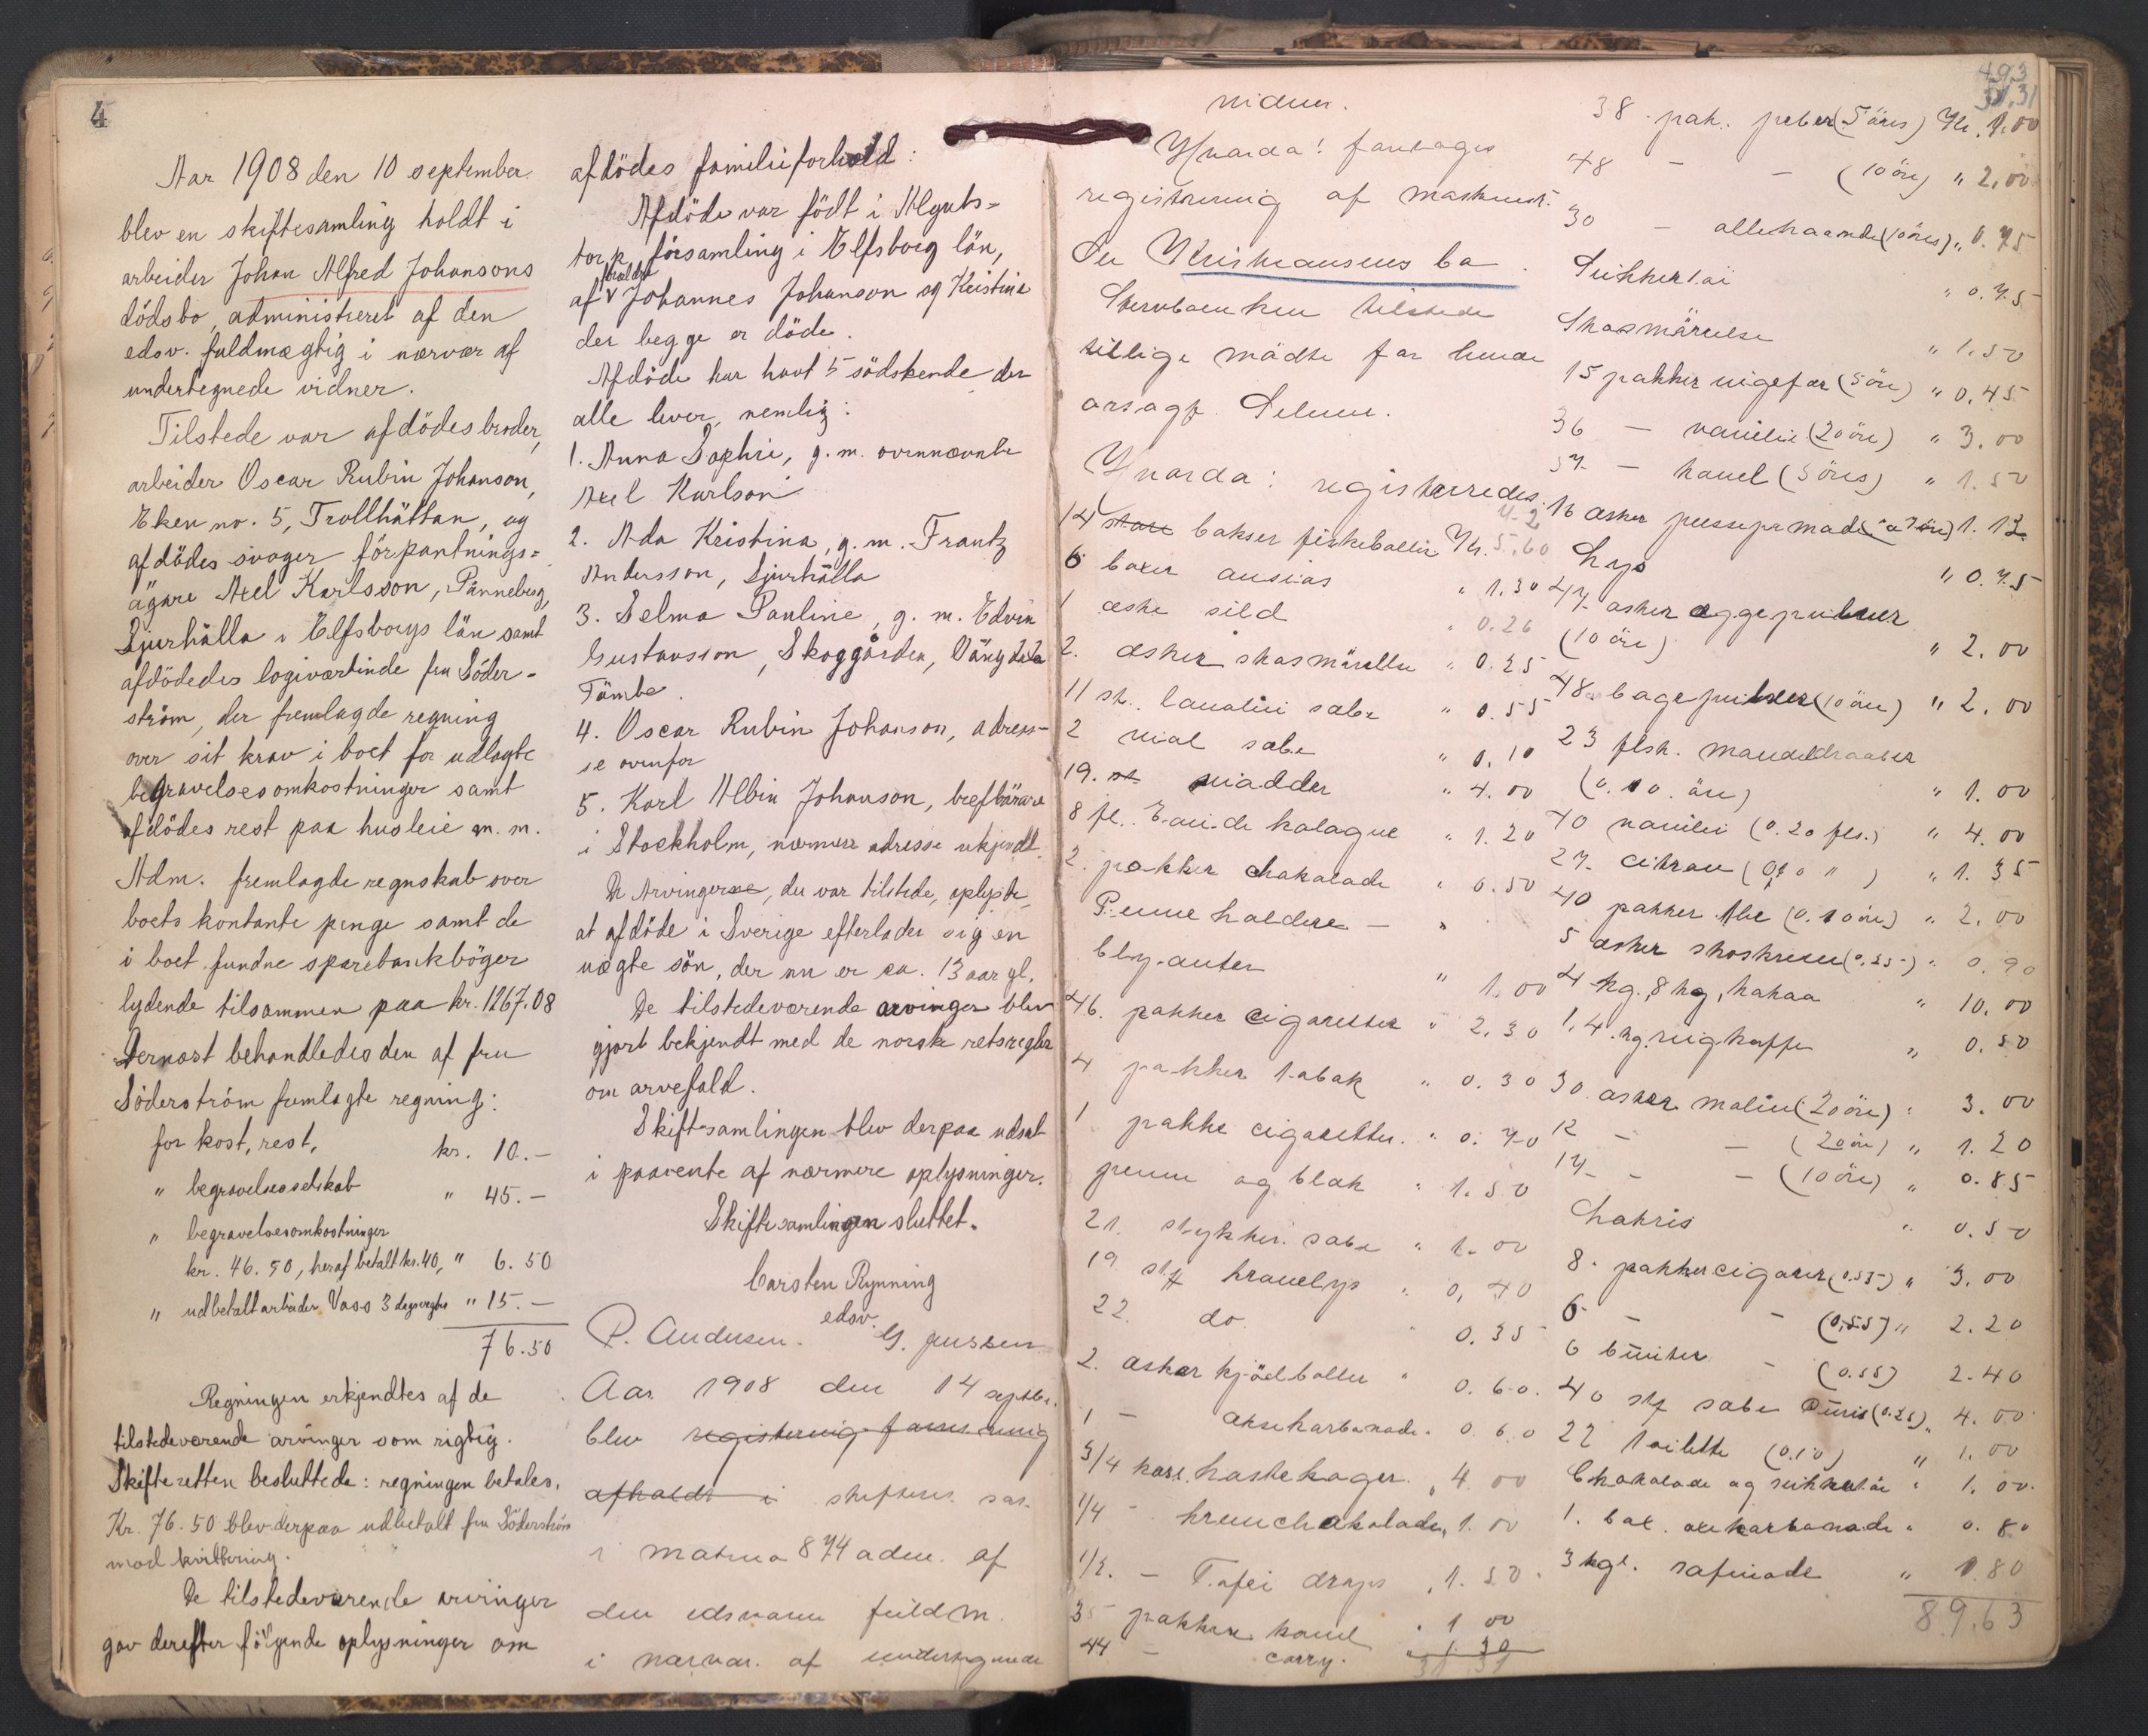 4
Aar 1908 den 10 september
blev en skiftesamling holdt i
arbeider Johan Alfred Johansons
dödsbo, administreret af den
edsv. fuldmægtig i nærvær af
undertegnede vidner.
Tilstede var afdödes broder,
arbeider Oscar Rubin Johanson,
Eken no. 5, Trollhättan, og
afdödes svoger förpantnings=
ägare Axel Karlsson, Pänneberg,
Ljurhälla i Elfsborgs län samt
afdödedes logivertinde fru Söder-
ström, der fremlagde regning
over sit krav i boet for udlagte
begravelsesomkostninger samt
afdödes rest paa husleie m. m.
Adm. fremlagde regnskab over
boets kontante penge samt de
i boet fundne sparebankböger
lydende tilsammen paa kr. 1267.08
Dernæst behandledes den af fru
Söderström fremlagte regning:
for kost, rest, kr. 10.-
" begravelsesselskab " 45.-
" begravelsesomkostninger
kr. 46.50, heraf betalt kr. 40, " 6.50
" udbetalt arbeider Vass 3 dages " 15.-
76.50
Regningen erkjendtes af de
tilstedeværende arvinger som rigtig.
Skifteretten besluttede: regningen betales.
Kr. 76.50 blev derpaa udbetalt fru Söderström
mod kvittering.
De tilstedeværende arvinger
gav derefter fölgende oplysninger om
afdödes familieforhold:
Afdöde var födt i Alguts-
torp församling i Elfsborg län,
af forældre Johannes Johanson og Kristina
der begge er döde.
Afdöde har havt 5 södskende der
alle lever, nemlig:
1. Anna Sophie, g. m. ovennævnte
Axel Karlson
2. Ada Kristina, g. m. Frantz
Andersson, Ljurhälla
3. Selma Pauline, g. m. Edvin
Gustavsson, Skoggården,
Tämbe.
4. Oscar Rubin Johanson, adres-
se ovenfor
5. Karl Albin Johanson, brefbärare
i Stockholm, nærmere adresse ukjendt.
De Arvingerne, der var tilstede, oplyste,
at afdöde i Sverige efterlader sig en
uægte sön, der nu er ca. 13 aar gl.
De tilstedeværende arvinger blev
gjort bekjendt med de norske retsregler
om arvefald.
Skiftesamlingen blev derpaa udsat
i paavente af nærmere oplysninger.
Skiftesamlingen sluttet.
Carsten Rynning
edsv.
P. Andersen. G. Jenssen
Aar 1908 den 14 septbr.
blev registrering
afholdt i skifteret. sar.
i Matma 874 adm. af
den edsvorne fuldm.
i nærvær. af undertegnede
vidner.
Hvorda: foretages
registrering af
Fru Kristiansens bo
Stervboenken tilstede
tillige mödte for hende
orsagf.
Hvorda: registreredes:
14 store bokser fiskeboller Kr. 5.60
6 boxer ansios " 1.30
1 æske sild " 0.26
2. æsker skosmörelse " 0.25
11 st. lanolin sæbe " 0.55
2 sæbe " 0.10
19. st. " 4.00
8 fl. Eau de kologne " 1.20
2. pakker chokolade " 0.50
Penneholdere - "
blyanter " 1.00
46. pakker cigaretter " 2.30
4 pakker tabak " 0.30
1 pakke cigaretter " 0.70
penne og blæk " 1.50
21. stykker sæbe " 1.00
19 stk kronelys " 0.40
22. do. " 0.35
2. æsker kjödboller " 0.60.
1 - oksekarbonade " 0.60
3/4 kass. kastekager " 4.00
1/4 - kremchokolade " 1.00
1/2. - Tofei drops " 1.50
35 pakker kanel " 1.00
44 - carry. " 1.30
31 31
493
31.31
38 - pak. peber (5 öres) Kr. 1.00
48 - - (10 öre) " 2.00
30 - allehaande (10 öres) " 0.75
Sukkertöi " 0.75
Skosmörelse " 1.50
15 pakker ingefær (5 öre) " 0.45
36 - vanilie (20 öre) " 3.00
57 - kanel (5 öres) " 1.50
16 æsker pudsepomade (a 7 öre) 1.12
Lys " 0.75
47 æsker æggepulver
(10 öre) " 2.00
48 - bagepulver (10 öre) " 2.00
23 flsk. mandeldraaber
(0.10 öre) " 1.00
40 vanilie (0.20 fls.) " 4.00
27. citron (0.10 " ) " 1.35
40 pakker the (0.10 öre) " 2.00
5 æsker skokrem (0.25) " 0.90
4 kg. 8 hg. kakao " 10.00
1.4 kg. rugkaffe " 0.50
30 æsker malin (20 öre) " 3.00
12 - - (20 öre) " 1.20
17 - - (10 öre) " 0.85
Lakris " 0.50
8 - pakker cigarer (0.55) " 3.00
6 - - (0.55) " 2.20
6 bunter - (0.55) 2.40
40 stk sæbe (0.25) " 4.00
22 toilette (0.10) " 1.00
Chokolade og sukkertöi " 1.00
1. box. oxekarbonade " 0.80
3 kgl. rafinade " 1.80
89.63